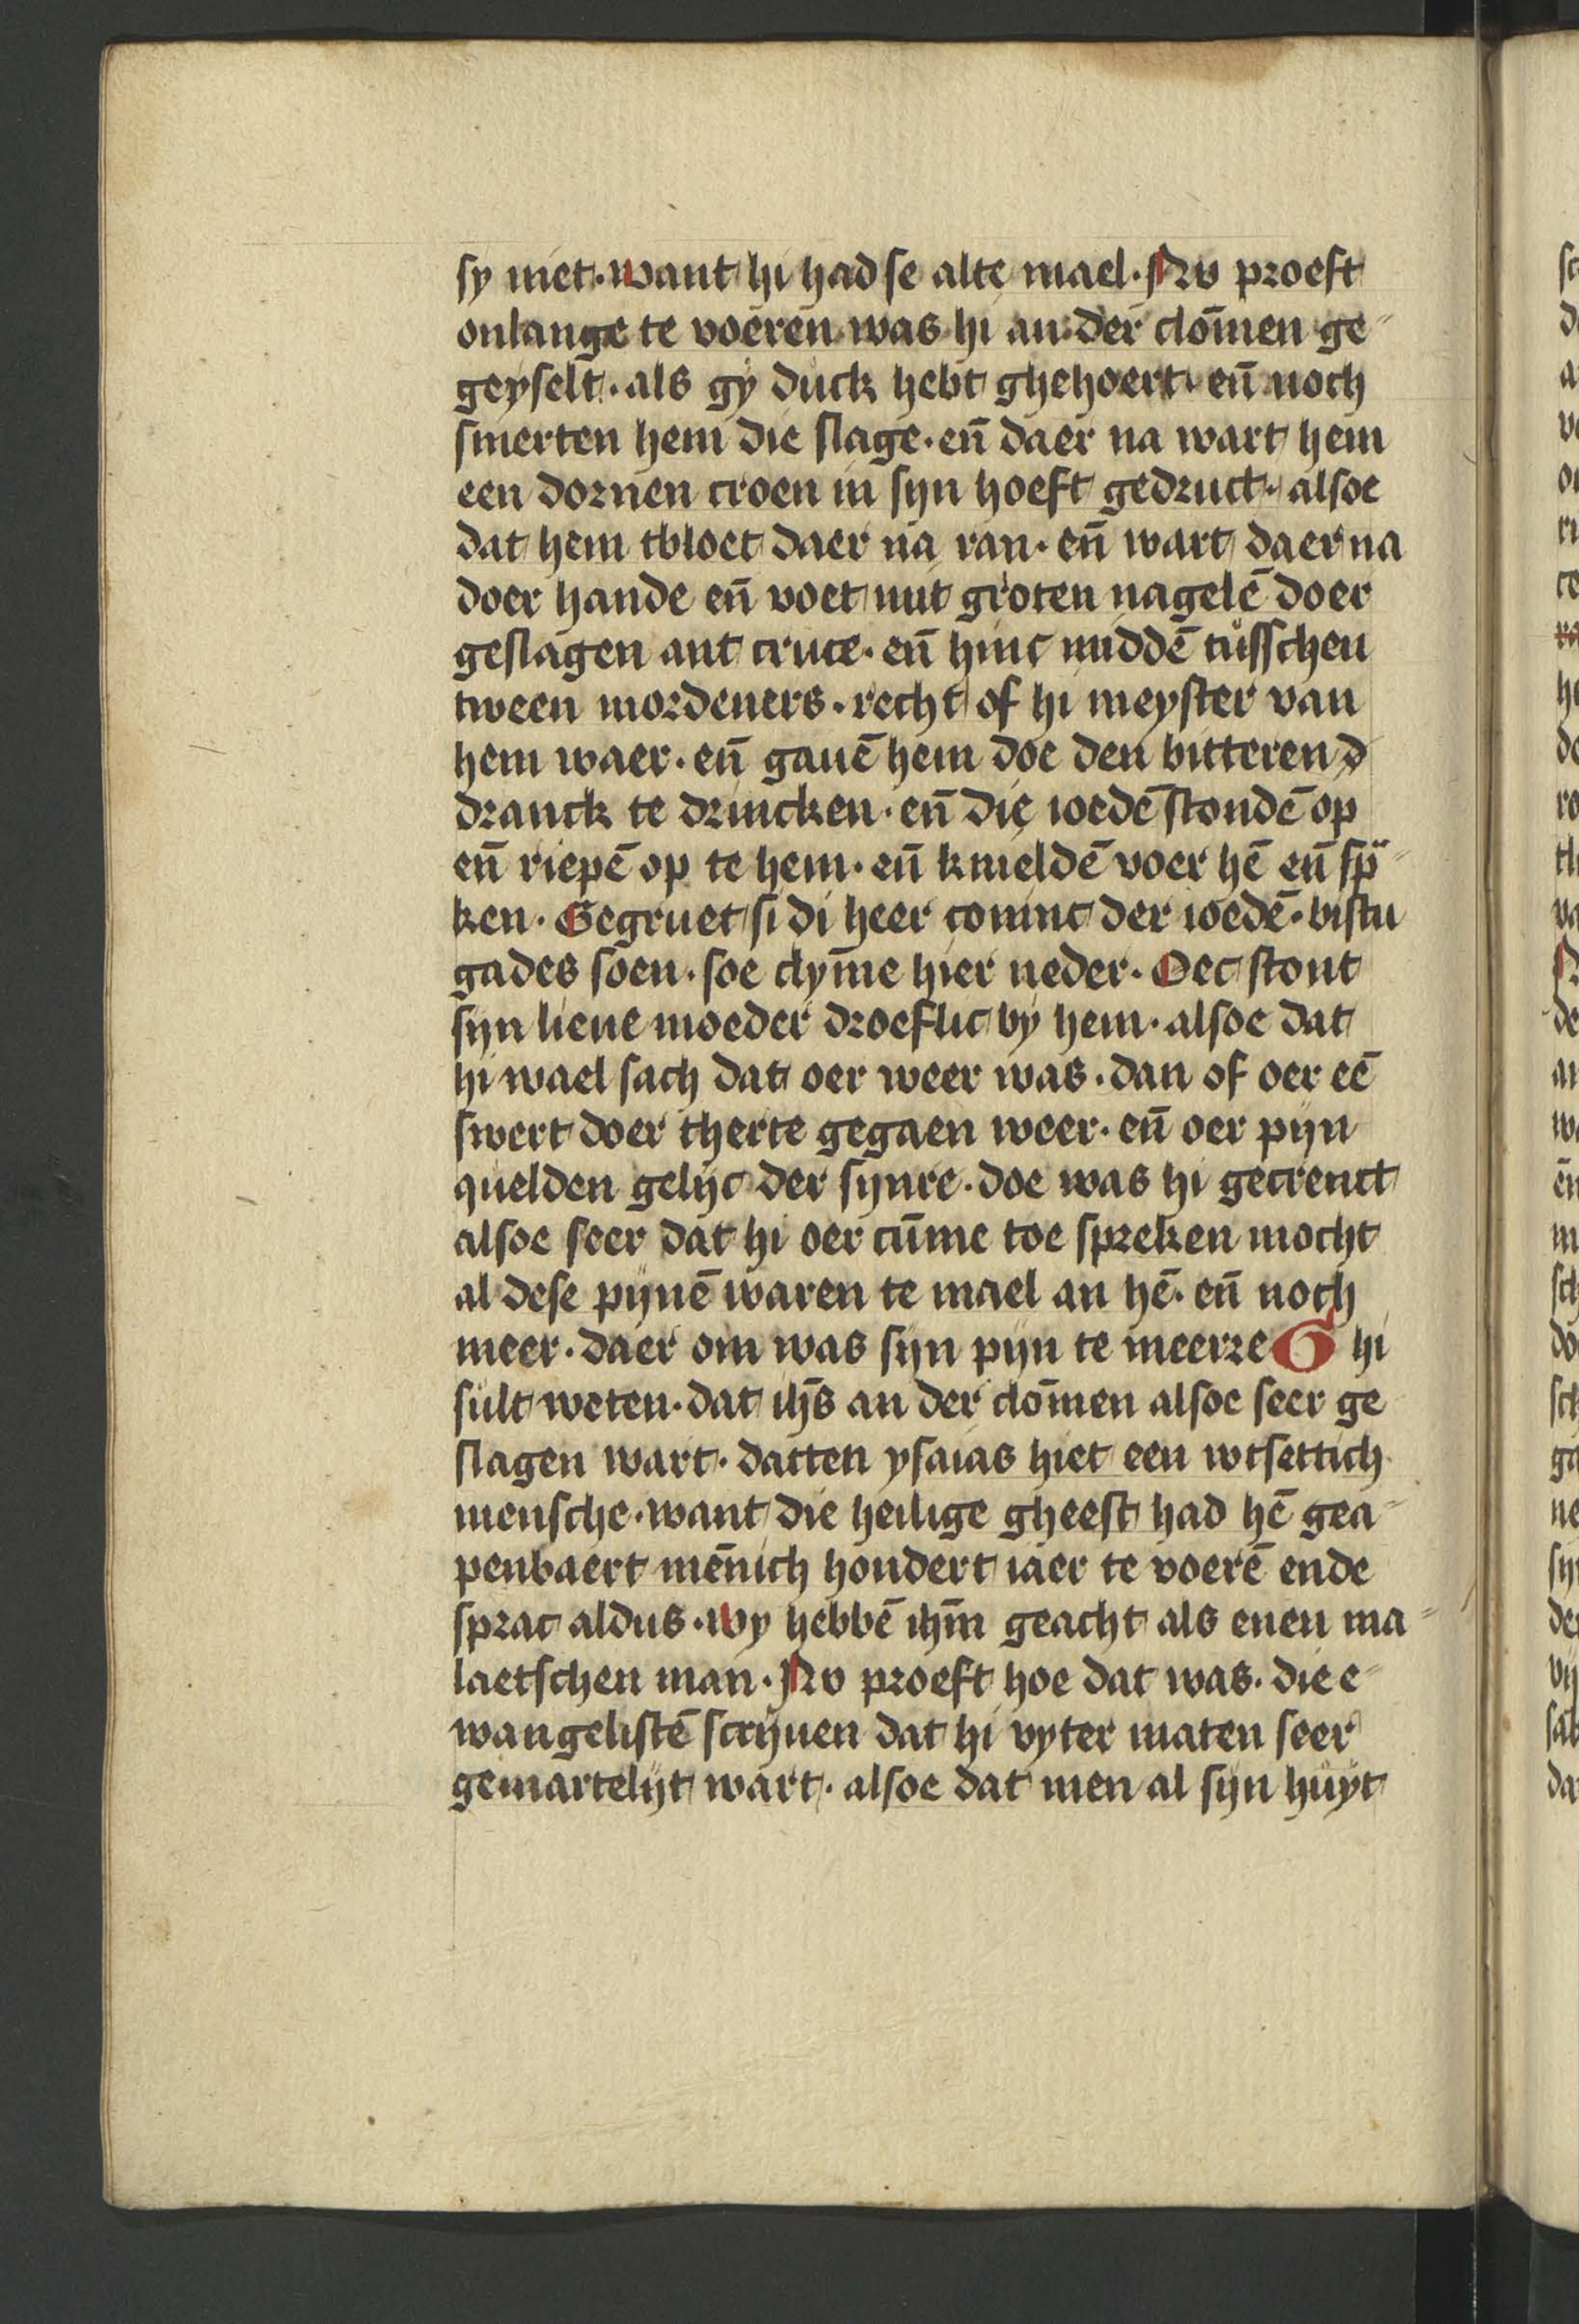 sy niet · want hi had se alte mael · Nv proeft
onlange te voeren was hi an der clom̄en ge-
geyselt · als gy duck hebt ghehoert · en̄ noch
smerten hem die slage · en̄ daer na wart hem
een dornen croen in syn hoeft gedruct · alsoe
dat hem tbloet daer na ran · en̄ wart daer na
doer hande en̄ voet mit groten nagelē doer
geslagen ant cruce · en̄ hinc middē tusschen
tween mordeners · recht of hi meyster van
hem waer · en̄ gauē hem doe den bitteren d
dranck te drincken · en̄ die ioedē stondē op
en̄ riepē op te hem · en̄ knieldē voer hē en̄ sp̈-
ken · Gegruet si di heer coninc der ioedē · bistu
gades soen · soe clym̄e hier neder · Oec stont
syn lieue moeder droeflic by hem · alsoe dat
hi wael sach dat oer weer was · dan of oer eē
swert doer therte gegaen weer · en̄ oer pijn
quelden gelijc der synre · doe was hi gecrenct
alsoe seer dat hi oer cūme toe spreken mocht
al dese pijnē waren te mael an hē · en̄ noch
meer · daer om was sijn pijn te meerre G hi
sult weten · dat ihs̄ an der clom̄en alsoe seer ge
slagen wart · datten ysaias hiet een wtsettich
mensche · want die heilige gheest had hē gea-
penbaert mēnich hondert iaer te voerē ende
sprac aldus · wy hebbē ihm̄ geacht als enen ma-
laetschen man · Nv proeft hoe dat was · die e-
wangelistē scrijuen dat hi vyter maten seer
gemartelijt wart · alsoe dat men al sijn huyt